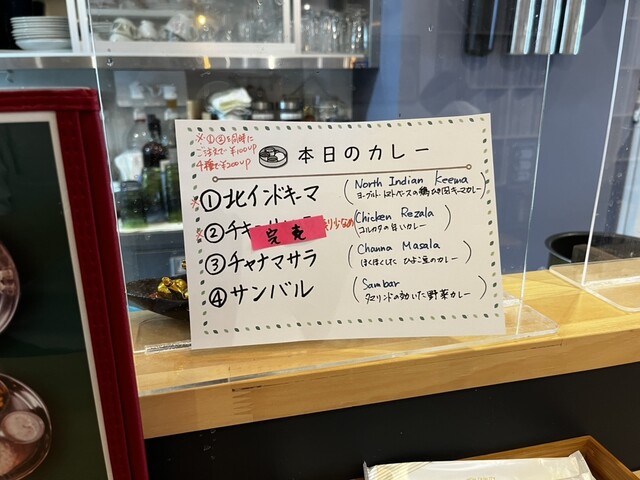 ※①②を同時に
ご注文で¥100up
4種で¥200up
本日のカレー
※①北インドキーマ
(North Indian Keema
ヨーグルト・トマトベースの鶏ひき肉キーマカレー)
②チキ
完売
残り少なめ
(Chicken Rezala
コルカタの甘いカレー)
③チャナマサラ
(Channa Masala
ほくほくした ひよこ豆のカレー)
④サンバル
(Sambar
タマリンドの効いた野菜カレー)